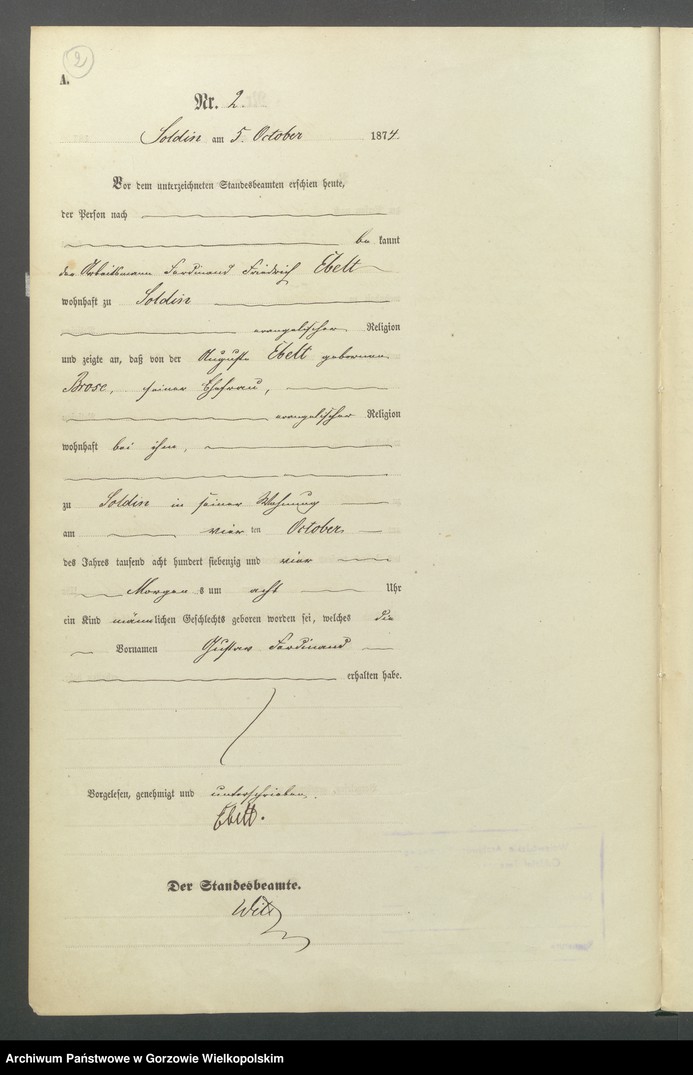 2
A.
Nr. 2.
Soldin am 5. October 1874.
Vor dem unterzeichneten Standesbeamten erschien heute,
der Person nach
be kannt
der Arbeitsmann Ferdinand Friedrich Ebelt
wohnhaft zu Soldin
evangelischer Religion
und zeigte an, daß von der Auguste Ebelt geborenen
Brose, seiner Ehefrau,
evangelischer Religion
wohnhaft bei ihm,
zu Soldin in seiner Wohnung
am vier ten October
des Jahres tausend acht hundert siebenzig und vier
Morgen s um acht Uhr
ein Kind männlichen Geschlechts geboren worden sei, welches die
Vornamen Gustav Ferdinand
erhalten habe.
Vorgelesen, genehmigt und unterschrieben.
Ebelt.
Der Standesbeamte.
Archiwum Państwowe w Gorzowie Wielkopolskim